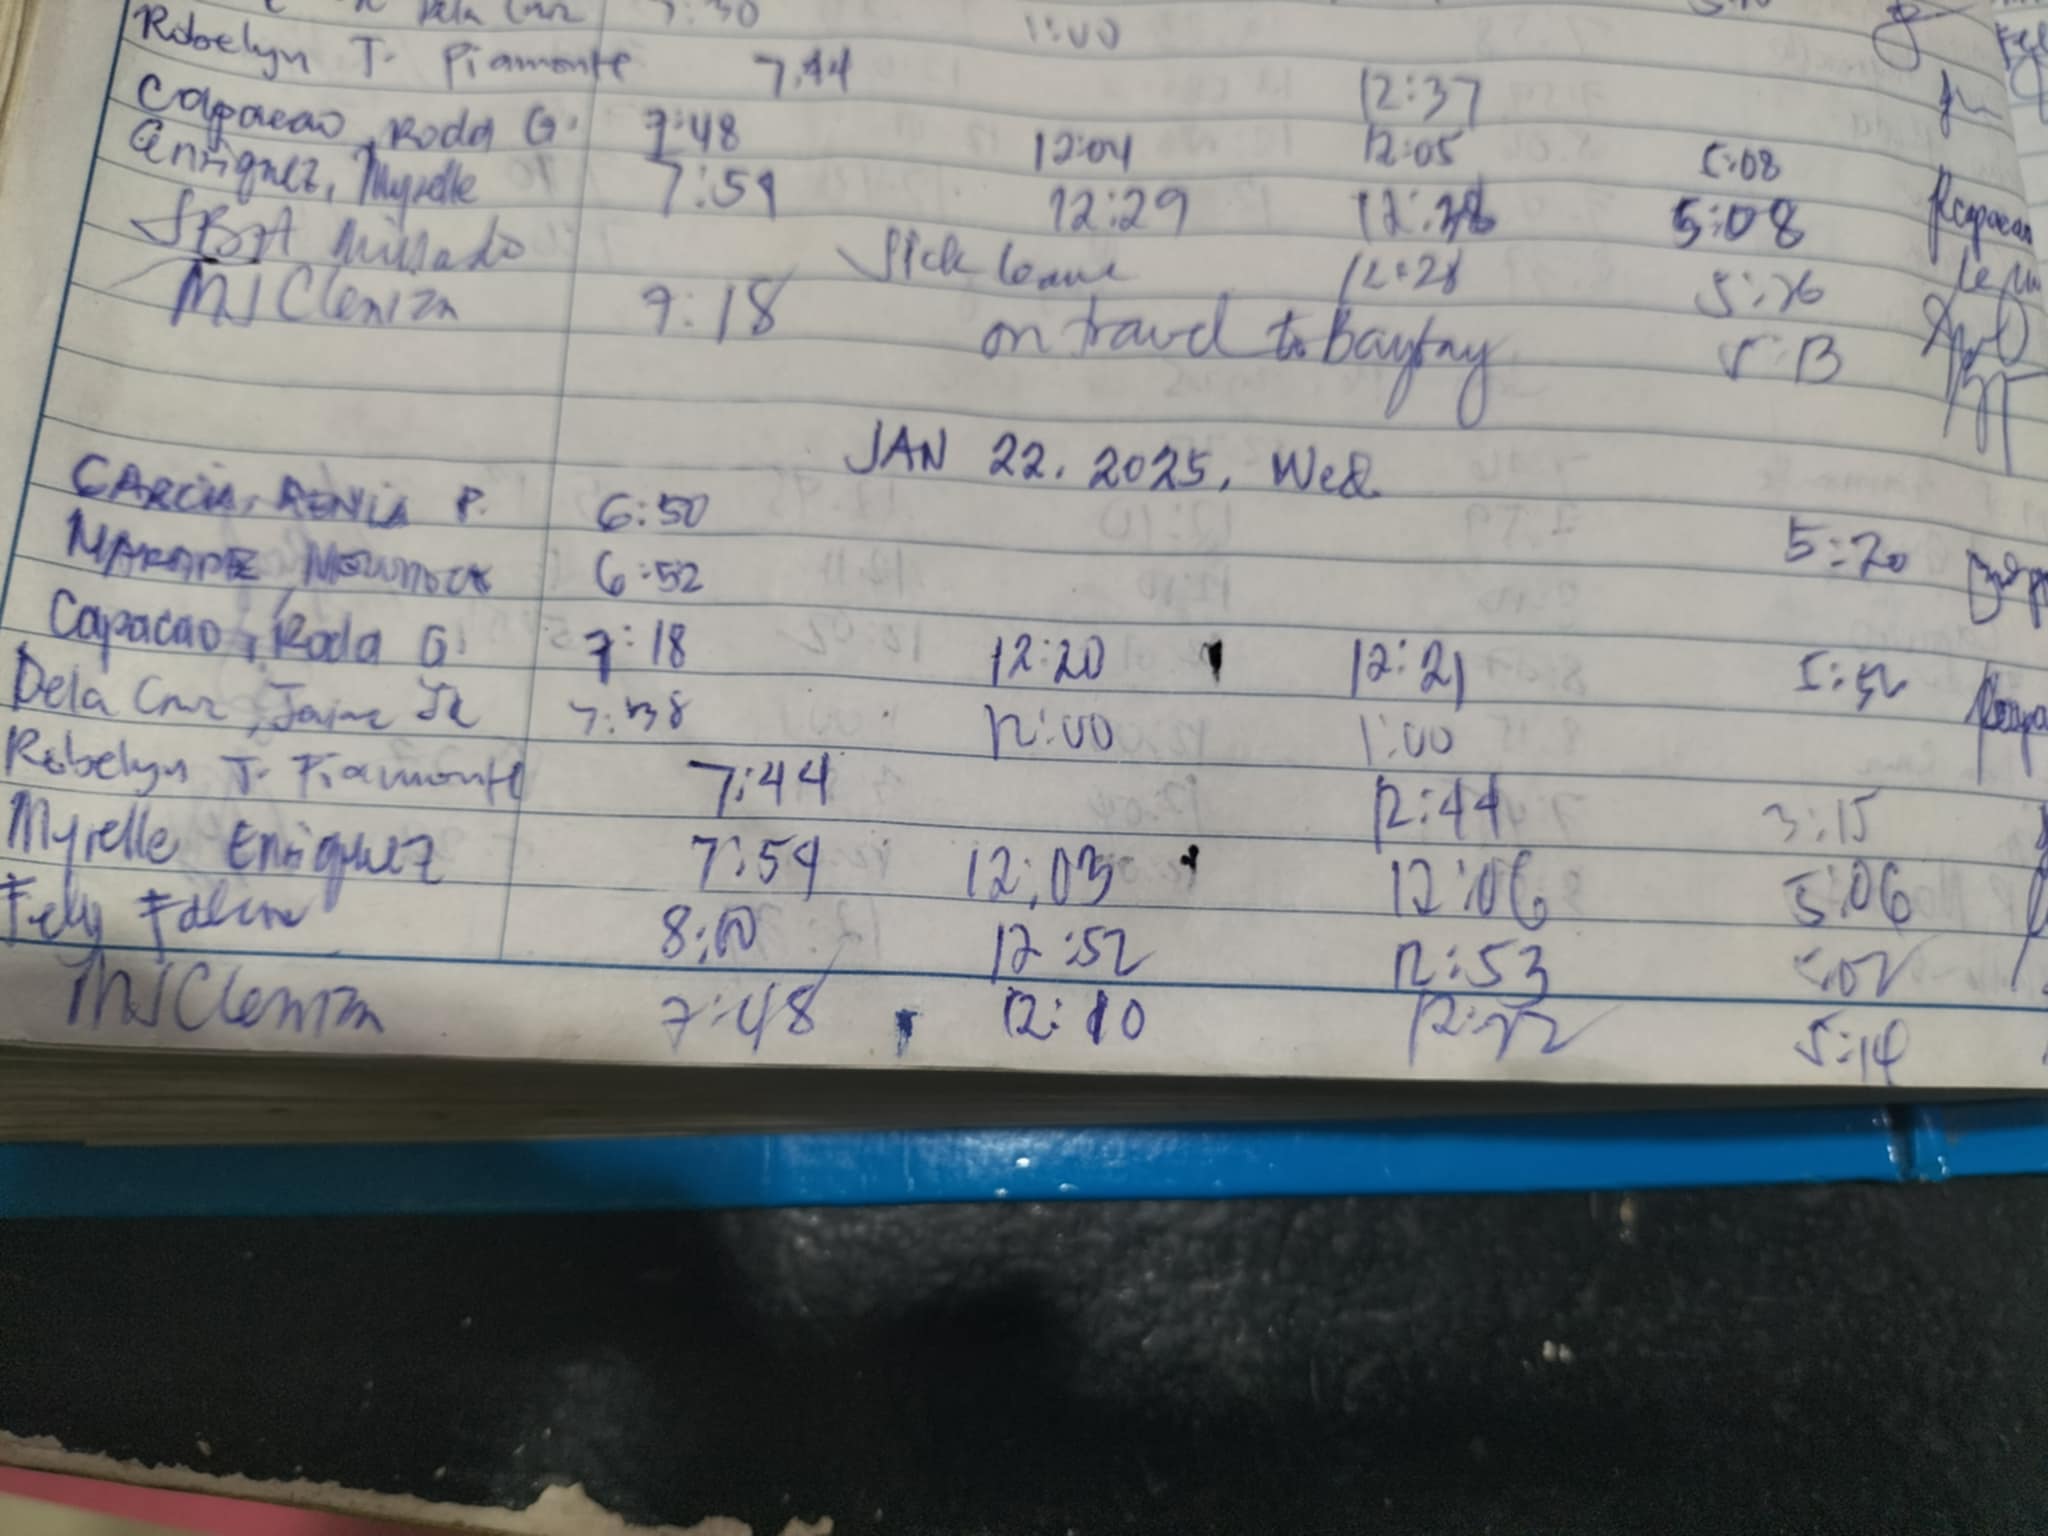 Dela Cruz 7:30 1:00
Robelyn T. Piamonte 7:44 12:37
Capacao, Roda G. 7:48 12:04 12:05 5:08
Enriquez, Myrelle 7:59 12:29 12:38 5:08
Sick leave 12:28 5:26
MJ Cleniza 9:18 on travel to Baybay 5:13
JAN 22, 2025, Wed.
GARCIA, P. 6:50 5:20
6:52
Capacao, Roda G. 7:18 12:20 12:21 5:52
Dela Cruz, Jaime Jr 7:38 12:00 1:00
Robelyn T. Piamonte 7:44 12:44 3:15
Myrelle Enriquez 7:59 12:03 12:06 5:06
Fely 8:10 12:52 12:53 5:02
MJ Cleniza 7:48 12:10 12:22 5:14